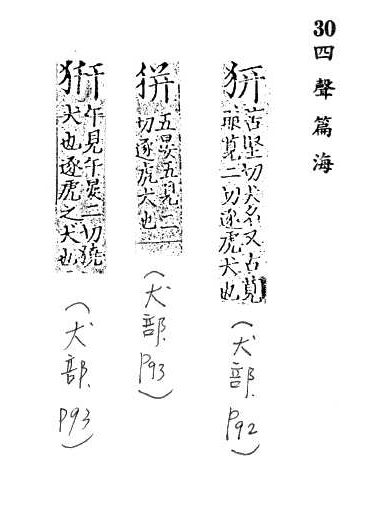 30四聲篇海
苦堅切犬名又古莧
莧二切逐虎犬也
(犬部.P92)
五晏五見二
切逐虎犬也
(犬部.P93)
午見午晏二切獟
犬也逐虎之犬也
(犬部.P93)